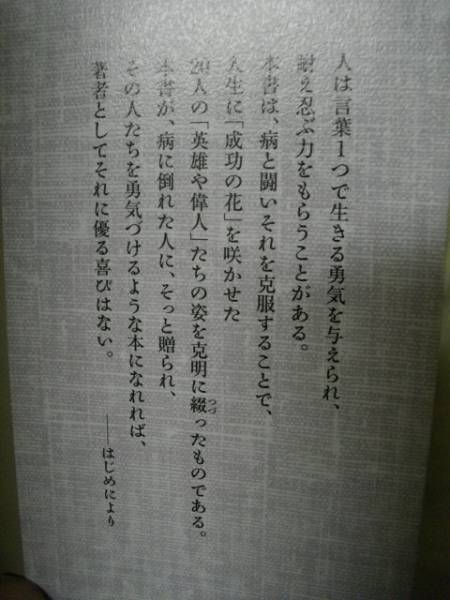 人は言葉1つで生きる勇気を与えられ、
耐え忍ぶ力をもらうことがある。
本書は、病と闘いそれを克服することで、
人生に「成功の花」を咲かせた
20人の「英雄や偉人」たちの姿を克明に綴ったものである。
本書が、病に倒れた人に、そっと贈られ、
その人たちを勇気づけるような本になれれば、
著者としてそれに優る喜びはない。
――はじめにより